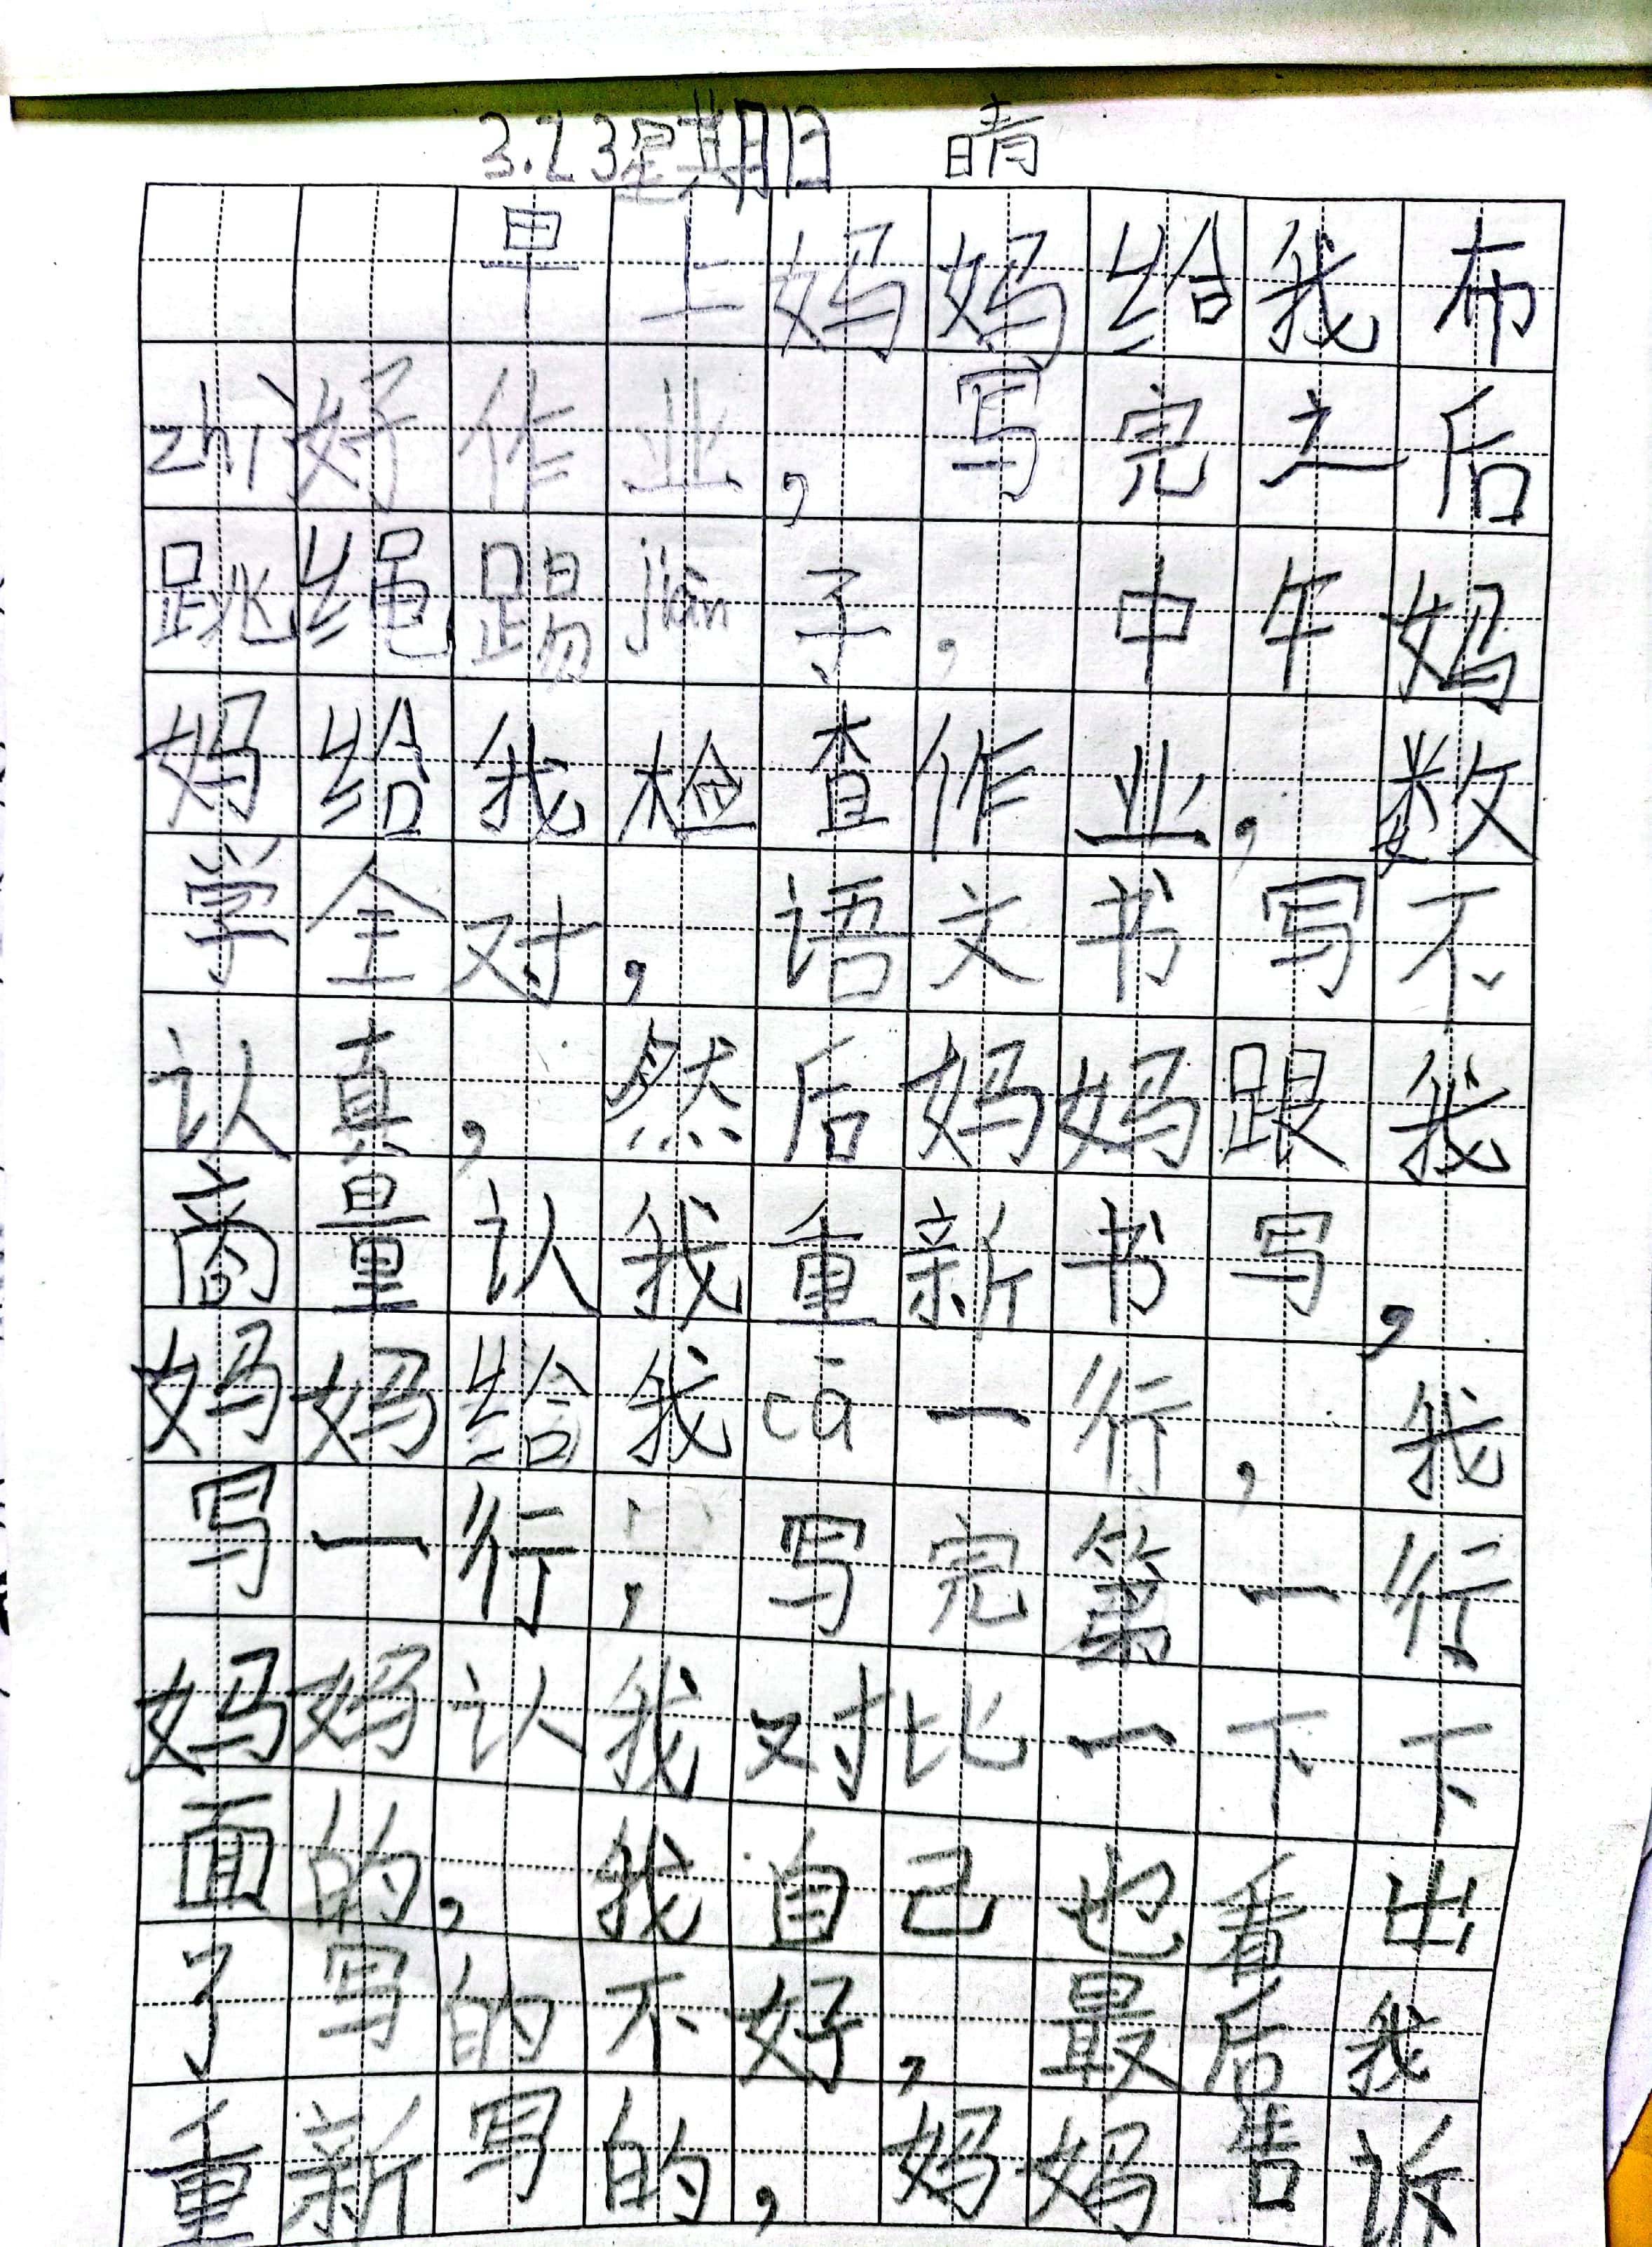 3.23星期日 晴
早上妈妈给我布
zhì好作业，写完之后
跳绳踢jiàn子，中午妈
妈给我检查作业，数
学全对，语文书写不
认真，然后妈妈跟我
商量认我重新书写，
妈妈给我cā一行，我
写一行，写完第一行
妈妈认我对比一下下
面的，我自己也看出
了写的不好，最后我
重新写的，妈妈告诉